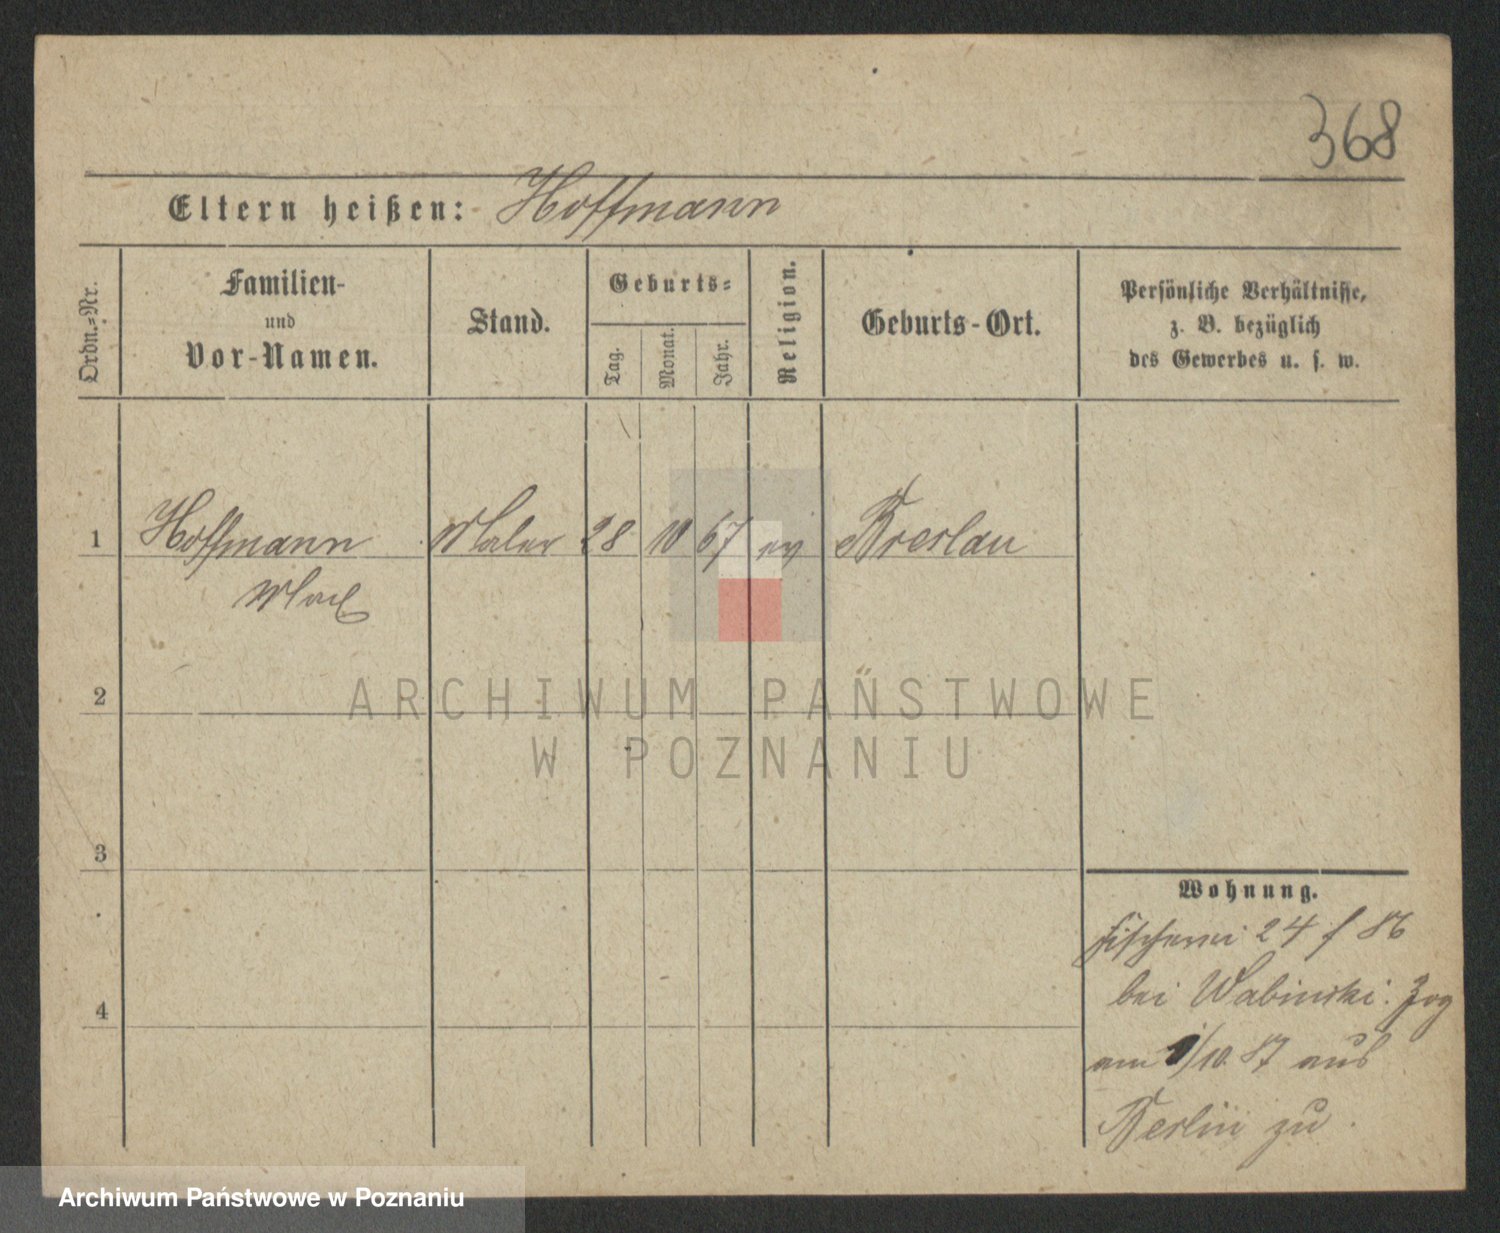 368
Eltern heißen: Hoffmann
Ordn.-Nr.
Familien-
und
Vor-Namen.
Stand.
Geburts-
Tag.
Monat.
Jahr.
Religion.
Geburts-Ort.
Persönliche Verhältnisse,
z. B. bezüglich
des Gewerbes u. s. w.
1 Hoffmann Maler 28 10 67 ev Breslau
2
ARCHIWUM PAŃSTWOWE
W POZNANIU
3
Wohnung.
Fischerei 24 f 86
bei Wabinski. Zog
4
am 1/10. 87 aus
Berlin zu
Archiwum Państwowe w Poznaniu